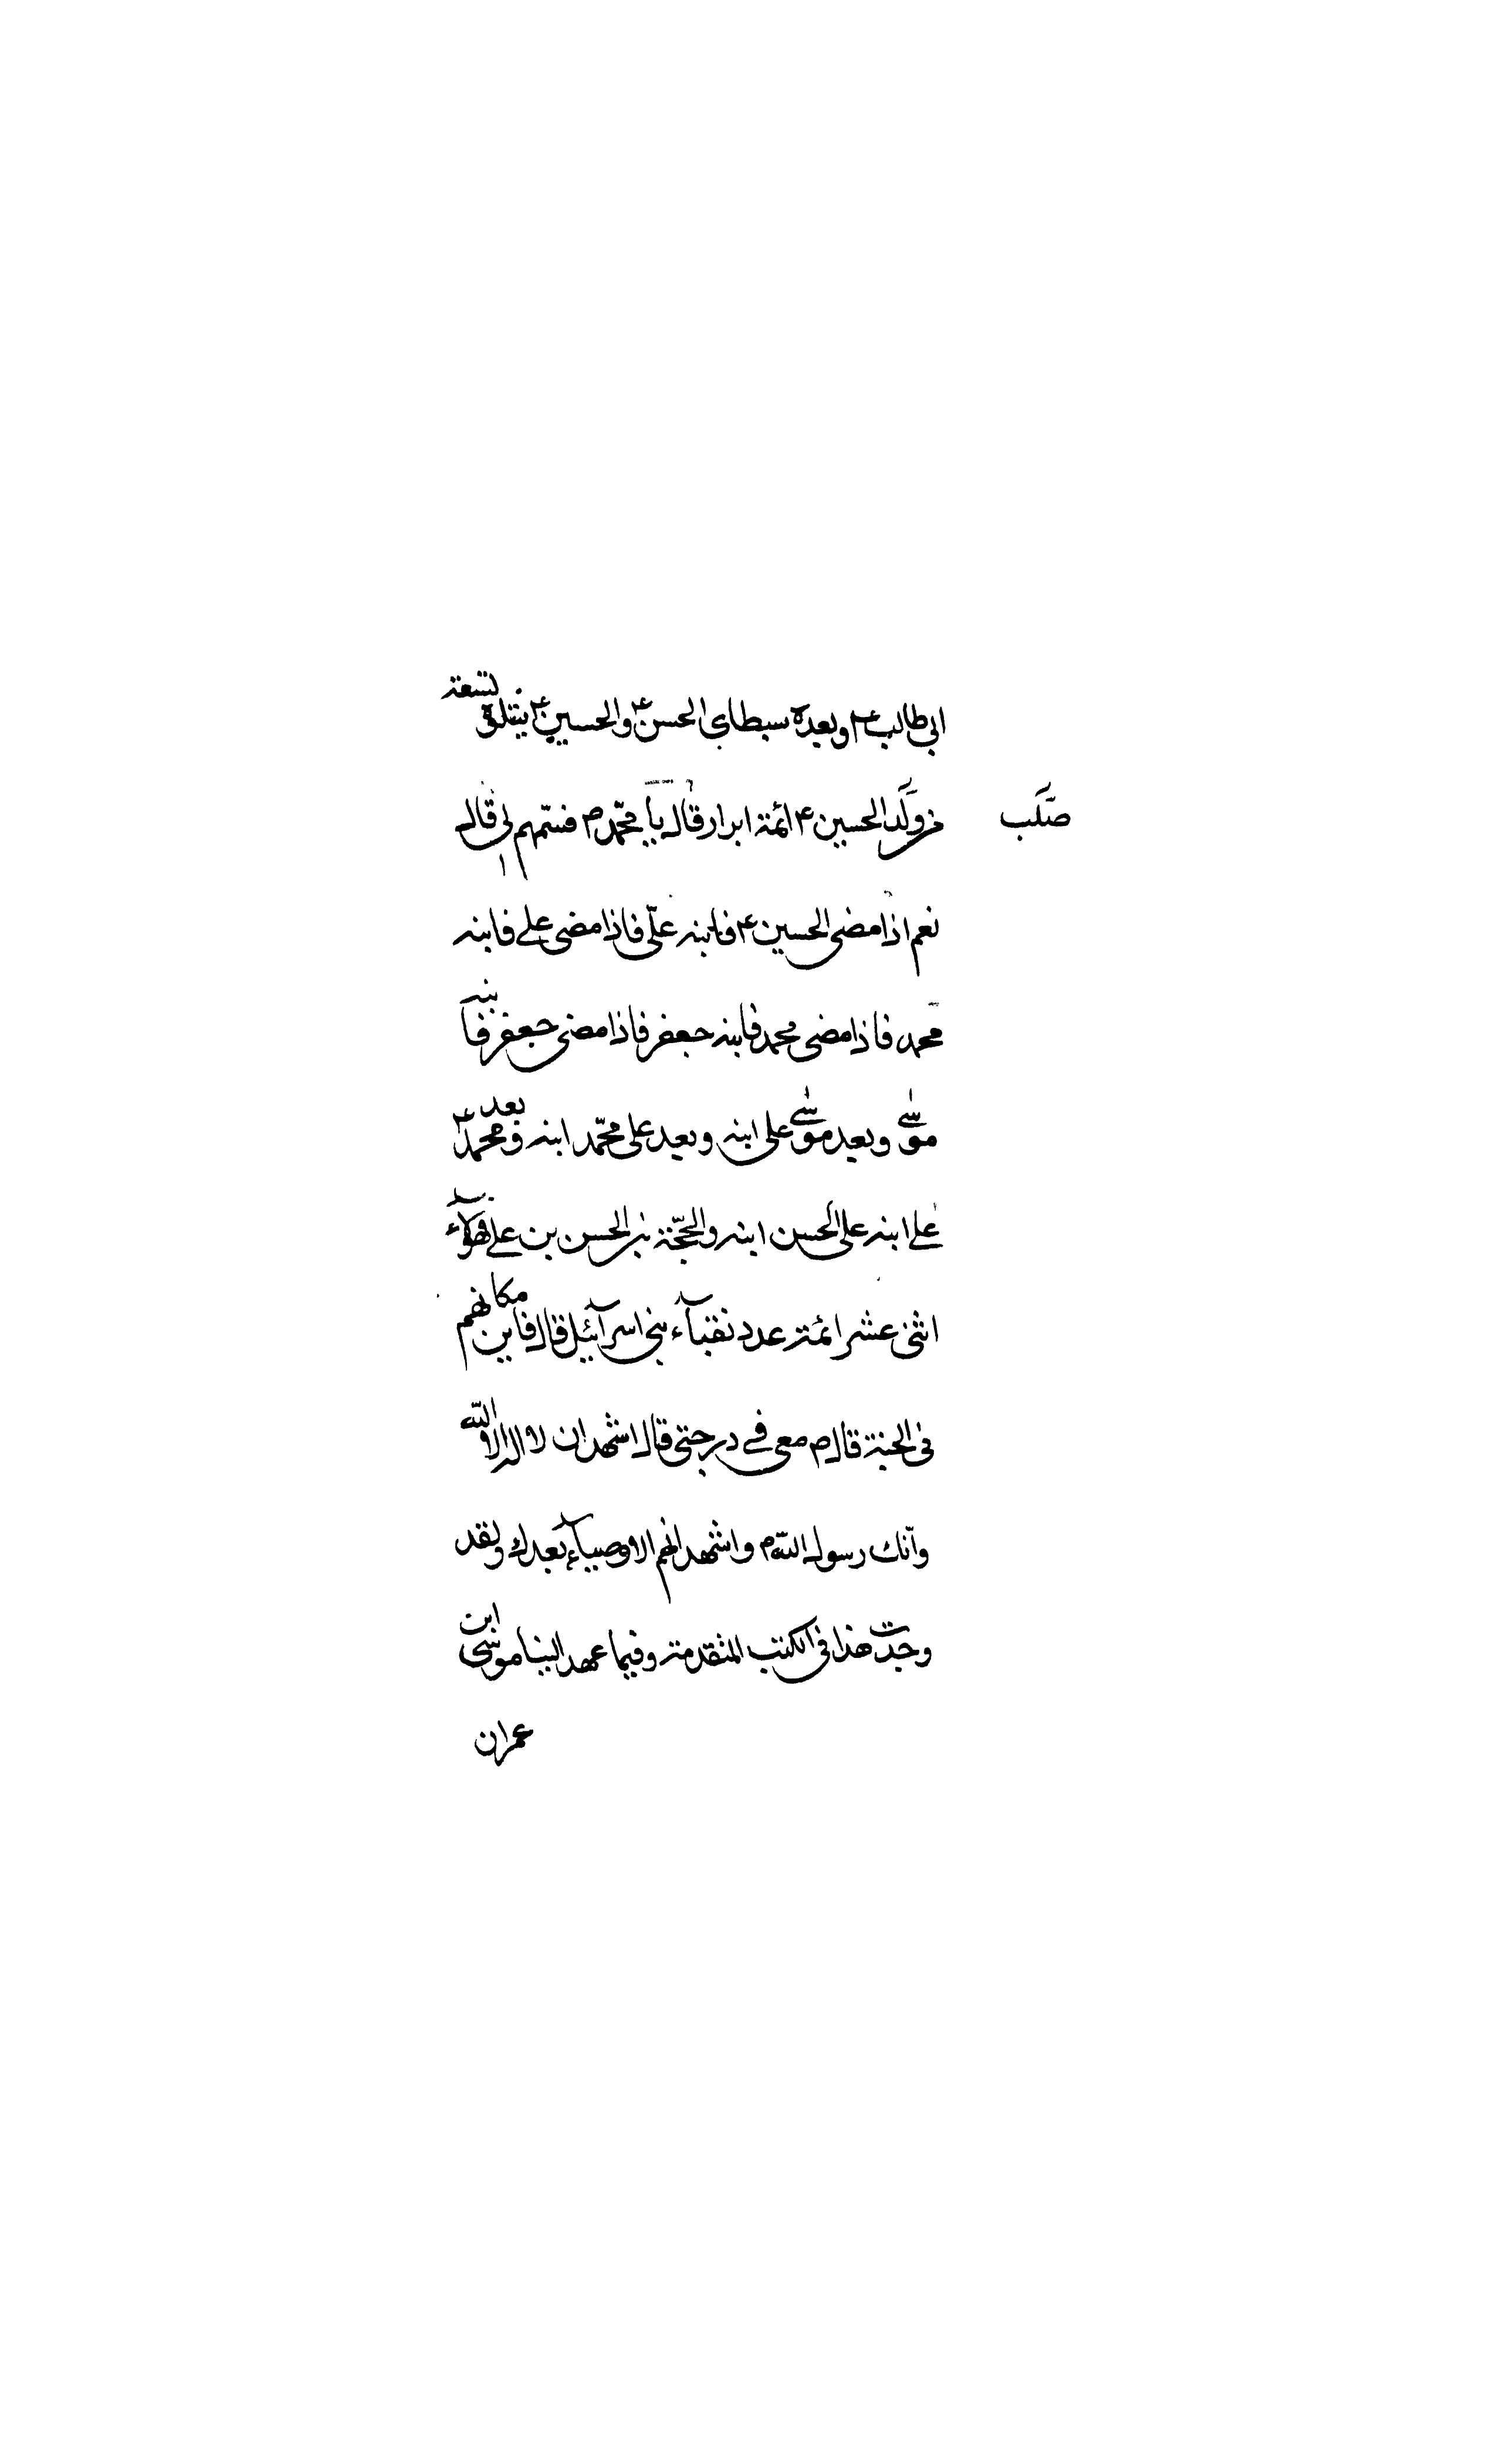 ابی طالب ع وبعده سبطای الحسن ع والحسین ع یتلوه تسعة
من ولد الحسین ع ائمة ابرار قال یا محمّد ص فسمّهم لی قال
صلب
نعم اذا مضی الحسین ع فابنه علّی فاذا مضی علی فابنه
محمد فاذا مضی محمد فابنه جعفر فاذا مضی جعفر فابنه
موسی وبعد موسی علی ابنه وبعد علی محمّد ابنه وبعد محمد
علی ابنه علی الحسن ابنه والحجّة بن الحسن بن علی فهؤلآء
اثنی عشر ائمة عدد نقبآء بنی اسرآئیل قال فاین مکانهم
فی الجنة قال ص معی فی درجتی قال اشهد ان لا اله الا اللّه
وانّک رسول اللّه ص واشهد انهم الاوصیآء بعدک ولقد
وجدت هذا فی الکتب المتقدمة وفیما عهد الینا موسی ابن
عمران